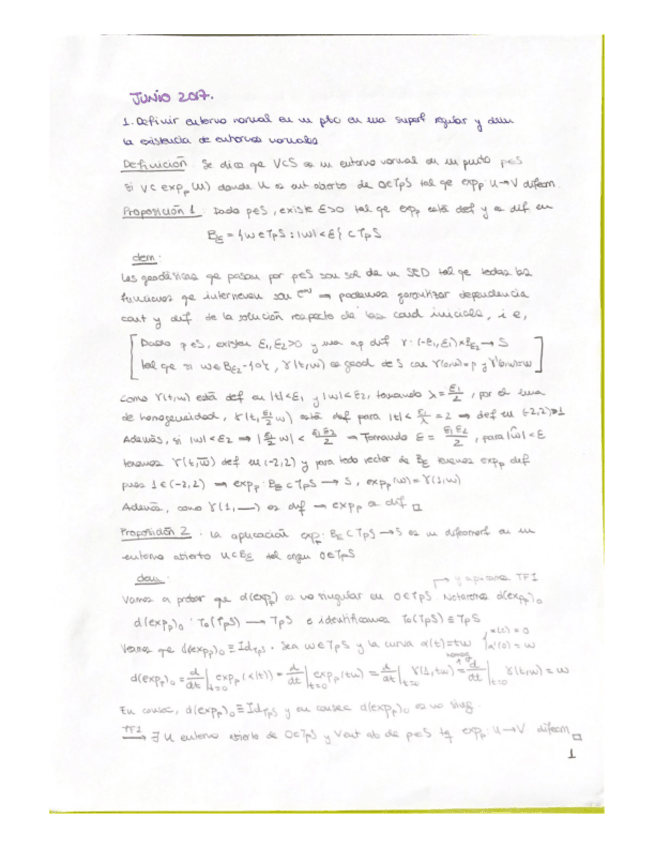 JUNIO 2017.
1. Definir entorno normal en un pto en una superf regular y dem
la existencia de entornos normales
Definición: Se dice qe V⊂S es un entorno normal de un punto p∈S
si V⊂exp_p(U) donde U es ent abierto de 0∈TpS tal qe exp_p: U→V difeom.
Proposición 1: Dado p∈S, existe ε>0 tal qe exp_p está def y es dif en
B_ε = {w∈TpS : |w|<ε} ⊂ TpS
dem:
Las geodésicas qe pasan por p∈S son sol de un SED tal qe todas las
funciones qe intervienen son C^∞ ⇒ podemos garantizar dependencia
cont y dif de la solución respecto de las cond iniciales, i e,
[Dado p∈S, existen ε1, ε2>0 y una ap dif γ: (-ε1,ε1)×B_ε2 → S
tal qe si w∈B_ε2-{0}, γ(t,w) es geod de S con γ(0,w)=p y γ'(0,w)=w]
Como γ(t,w) está def en |t|<ε1 y |w|<ε2, tomando λ=ε1/2, por el lema
de homogeneidad, γ(t, ε1/2 w) está def para |t|< ε1/λ = 2 ⇒ def en (-2,2)∋1
Además, si |w|<ε2 ⇒ |ε1/2 w| < ε1ε2/2 ⇒ Tomando ε = ε1ε2/2, para |w̄|<ε
tenemos γ(t,w̄) def en (-2,2) y para todo vector de B_ε tenemos exp_p def
pues 1∈(-2,2) ⇒ exp_p: B_ε⊂TpS → S, exp_p(w)=γ(1,w)
Además, como γ(1,—) es dif ⇒ exp_p es dif □
Proposición 2: La aplicación exp_p: B_ε⊂TpS→S es un difeomorf en un
entorno abierto U⊂B_ε del origen 0∈TpS
dem:
→ y aplicamos TFI
Vamos a probar que d(exp_p) es no singular en 0∈TpS. Notaremos d(exp_p)_0
d(exp_p)_0 : T_0(TpS) → TpS e identificamos T_0(TpS) ≡ TpS
Veamos qe d(exp_p)_0 ≡ Id_TpS. Sea w∈TpS y la curva α(t)=tw {α(0)=0 α'(0)=w
d(exp_p)_0 = d/dt|_{t=0} exp_p(α(t)) = d/dt|_{t=0} exp_p(tw) = d/dt|_{t=0} γ(1,tw) = d/dt|_{t=0} γ(t,w) = w
En consec, d(exp_p)_0 ≡ Id_TpS y en consec d(exp_p)_0 es no sing.
⇒ ∃ U entorno abierto de 0∈TpS y V ent ab de p∈S tq exp_p: U→V difeom □
1